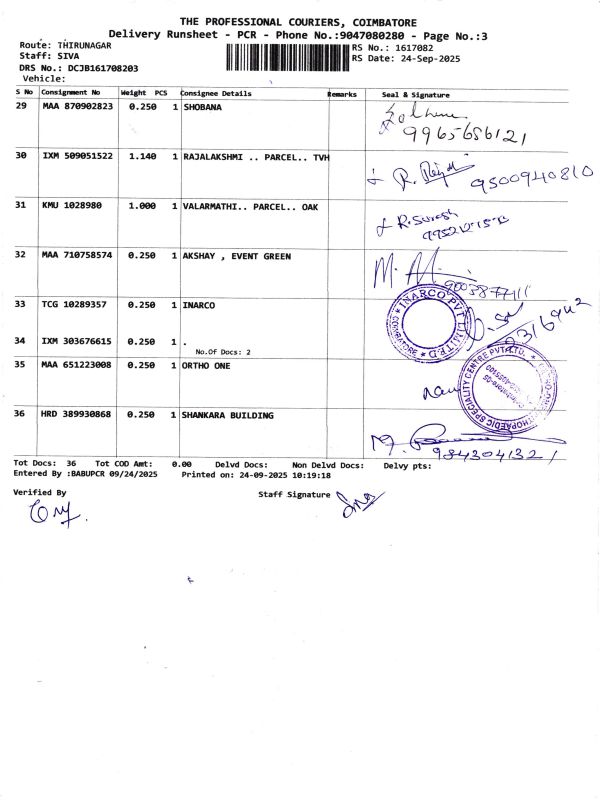 THE PROFESSIONAL COURIERS, COIMBATORE
Delivery Runsheet - PCR - Phone No.:9047080280 - Page No.:3
Route: THIRUNAGAR
Staff: SIVA
DRS No.: DCJB161708203
Vehicle:
RS No.: 1617082
RS Date: 24-Sep-2025
S No Consignment No Weight PCS Consignee Details Remarks Seal & Signature
29 MAA 870902823 0.250 1 SHOBANA
9965686121
30 IXM 509051522 1.140 1 RAJALAKSHMI .. PARCEL.. TVH
9500940810
31 KMU 1028980 1.000 1 VALARMATHI.. PARCEL.. OAK
R.Suresh
32 MAA 710758574 0.250 1 AKSHAY , EVENT GREEN
9003877111
33 TCG 10289357 0.250 1 INARCO
INARCO PVT LIMITED
COIMBATORE
34 IXM 303676615 0.250 1 .
No.Of Docs: 2
35 MAA 651223008 0.250 1 ORTHO ONE
ORTHOPAEDIC SPECIALITY CENTRE PVT. LTD.
36 HRD 389930868 0.250 1 SHANKARA BUILDING
9843041321
Tot Docs: 36 Tot COD Amt: 0.00 Delvd Docs: Non Delvd Docs: Delvy pts:
Entered By :BABUPCR 09/24/2025 Printed on: 24-09-2025 10:19:18
Verified By
Staff Signature